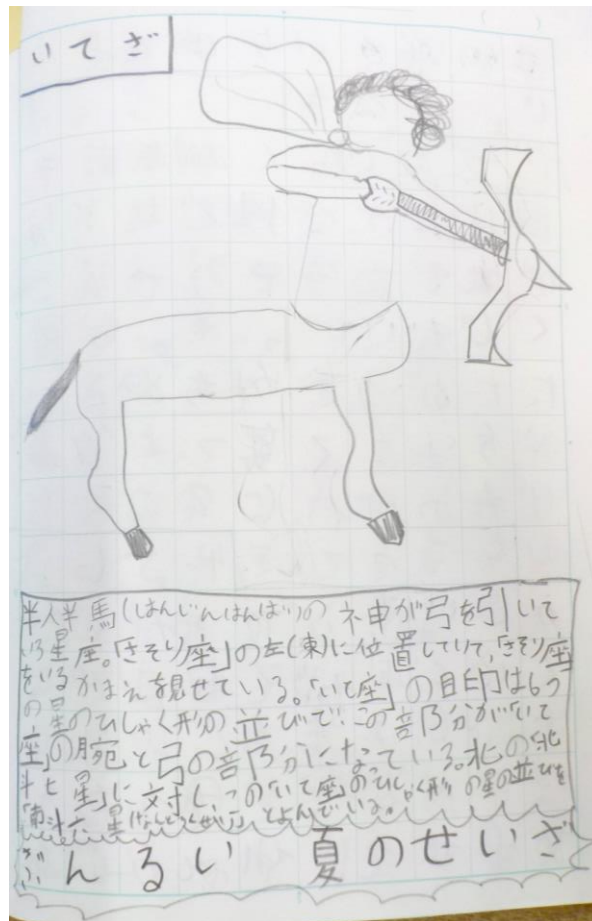 いてざ
半人半馬(はんじんはんば)の神が弓を引いて
いる星座。「さそり座」の左(東)に位置していて、「さそり座
をいるかまえを見せている。「いて座」の目印は6つ
の星のひしゃく形の並びで、この部分が「いて
座」の腕と弓の部分になっている。北の「北
斗七星」に対し、この「いて座」のひしゃく形の星の並びを
「南斗六星(なんとろくせい)」とよんでいる。
ぶんるい 夏のせいざ